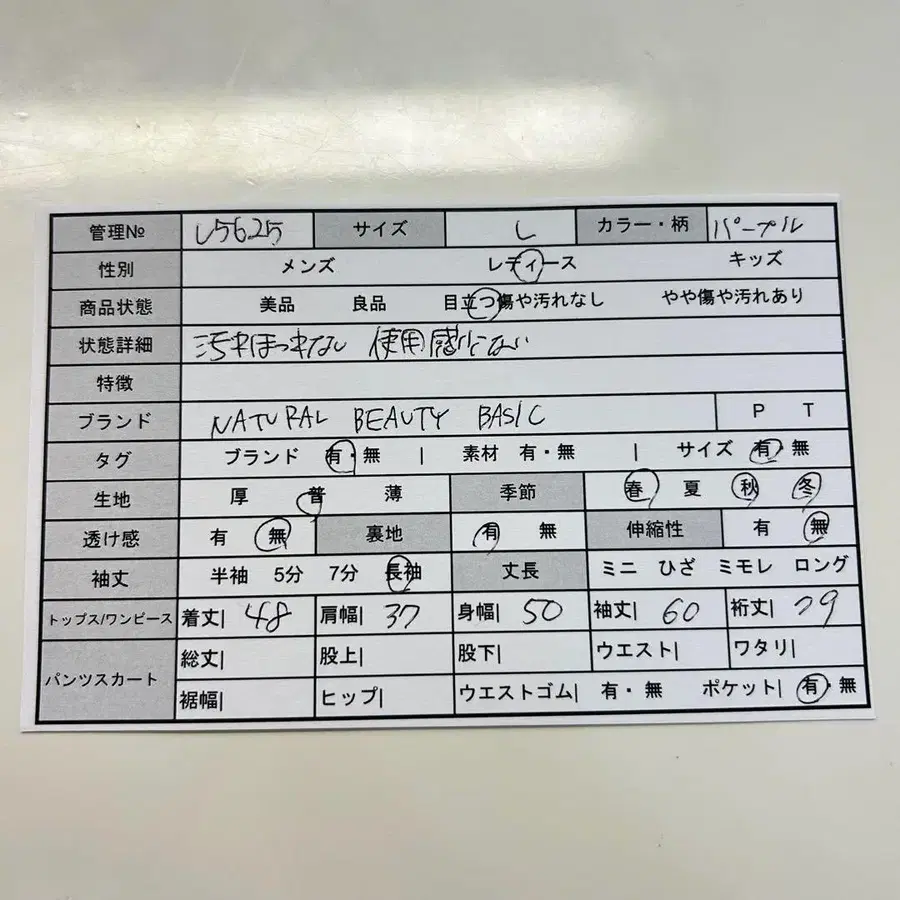 管理№ L5625 サイズ L カラー・柄 パープル
性別 メンズ レディース キッズ
商品状態 美品 良品 目立つ傷や汚れなし やや傷や汚れあり
状態詳細 汚れほつれない 使用感少ない
特徴
ブランド NATURAL BEAUTY BASIC P T
タグ ブランド 有・無 | 素材 有・無 | サイズ 有・無
生地 厚 普 薄 季節 春 夏 秋 冬
透け感 有 無 裏地 有 無 伸縮性 有 無
袖丈 半袖 5分 7分 長袖 丈長 ミニ ひざ ミモレ ロング
トップス/ワンピース 着丈| 48 肩幅| 37 身幅| 50 袖丈| 60 裄丈| 79
パンツスカート 総丈| 股上| 股下| ウエスト| ワタリ|
裾幅| ヒップ| ウエストゴム| 有・無 ポケット| 有・無